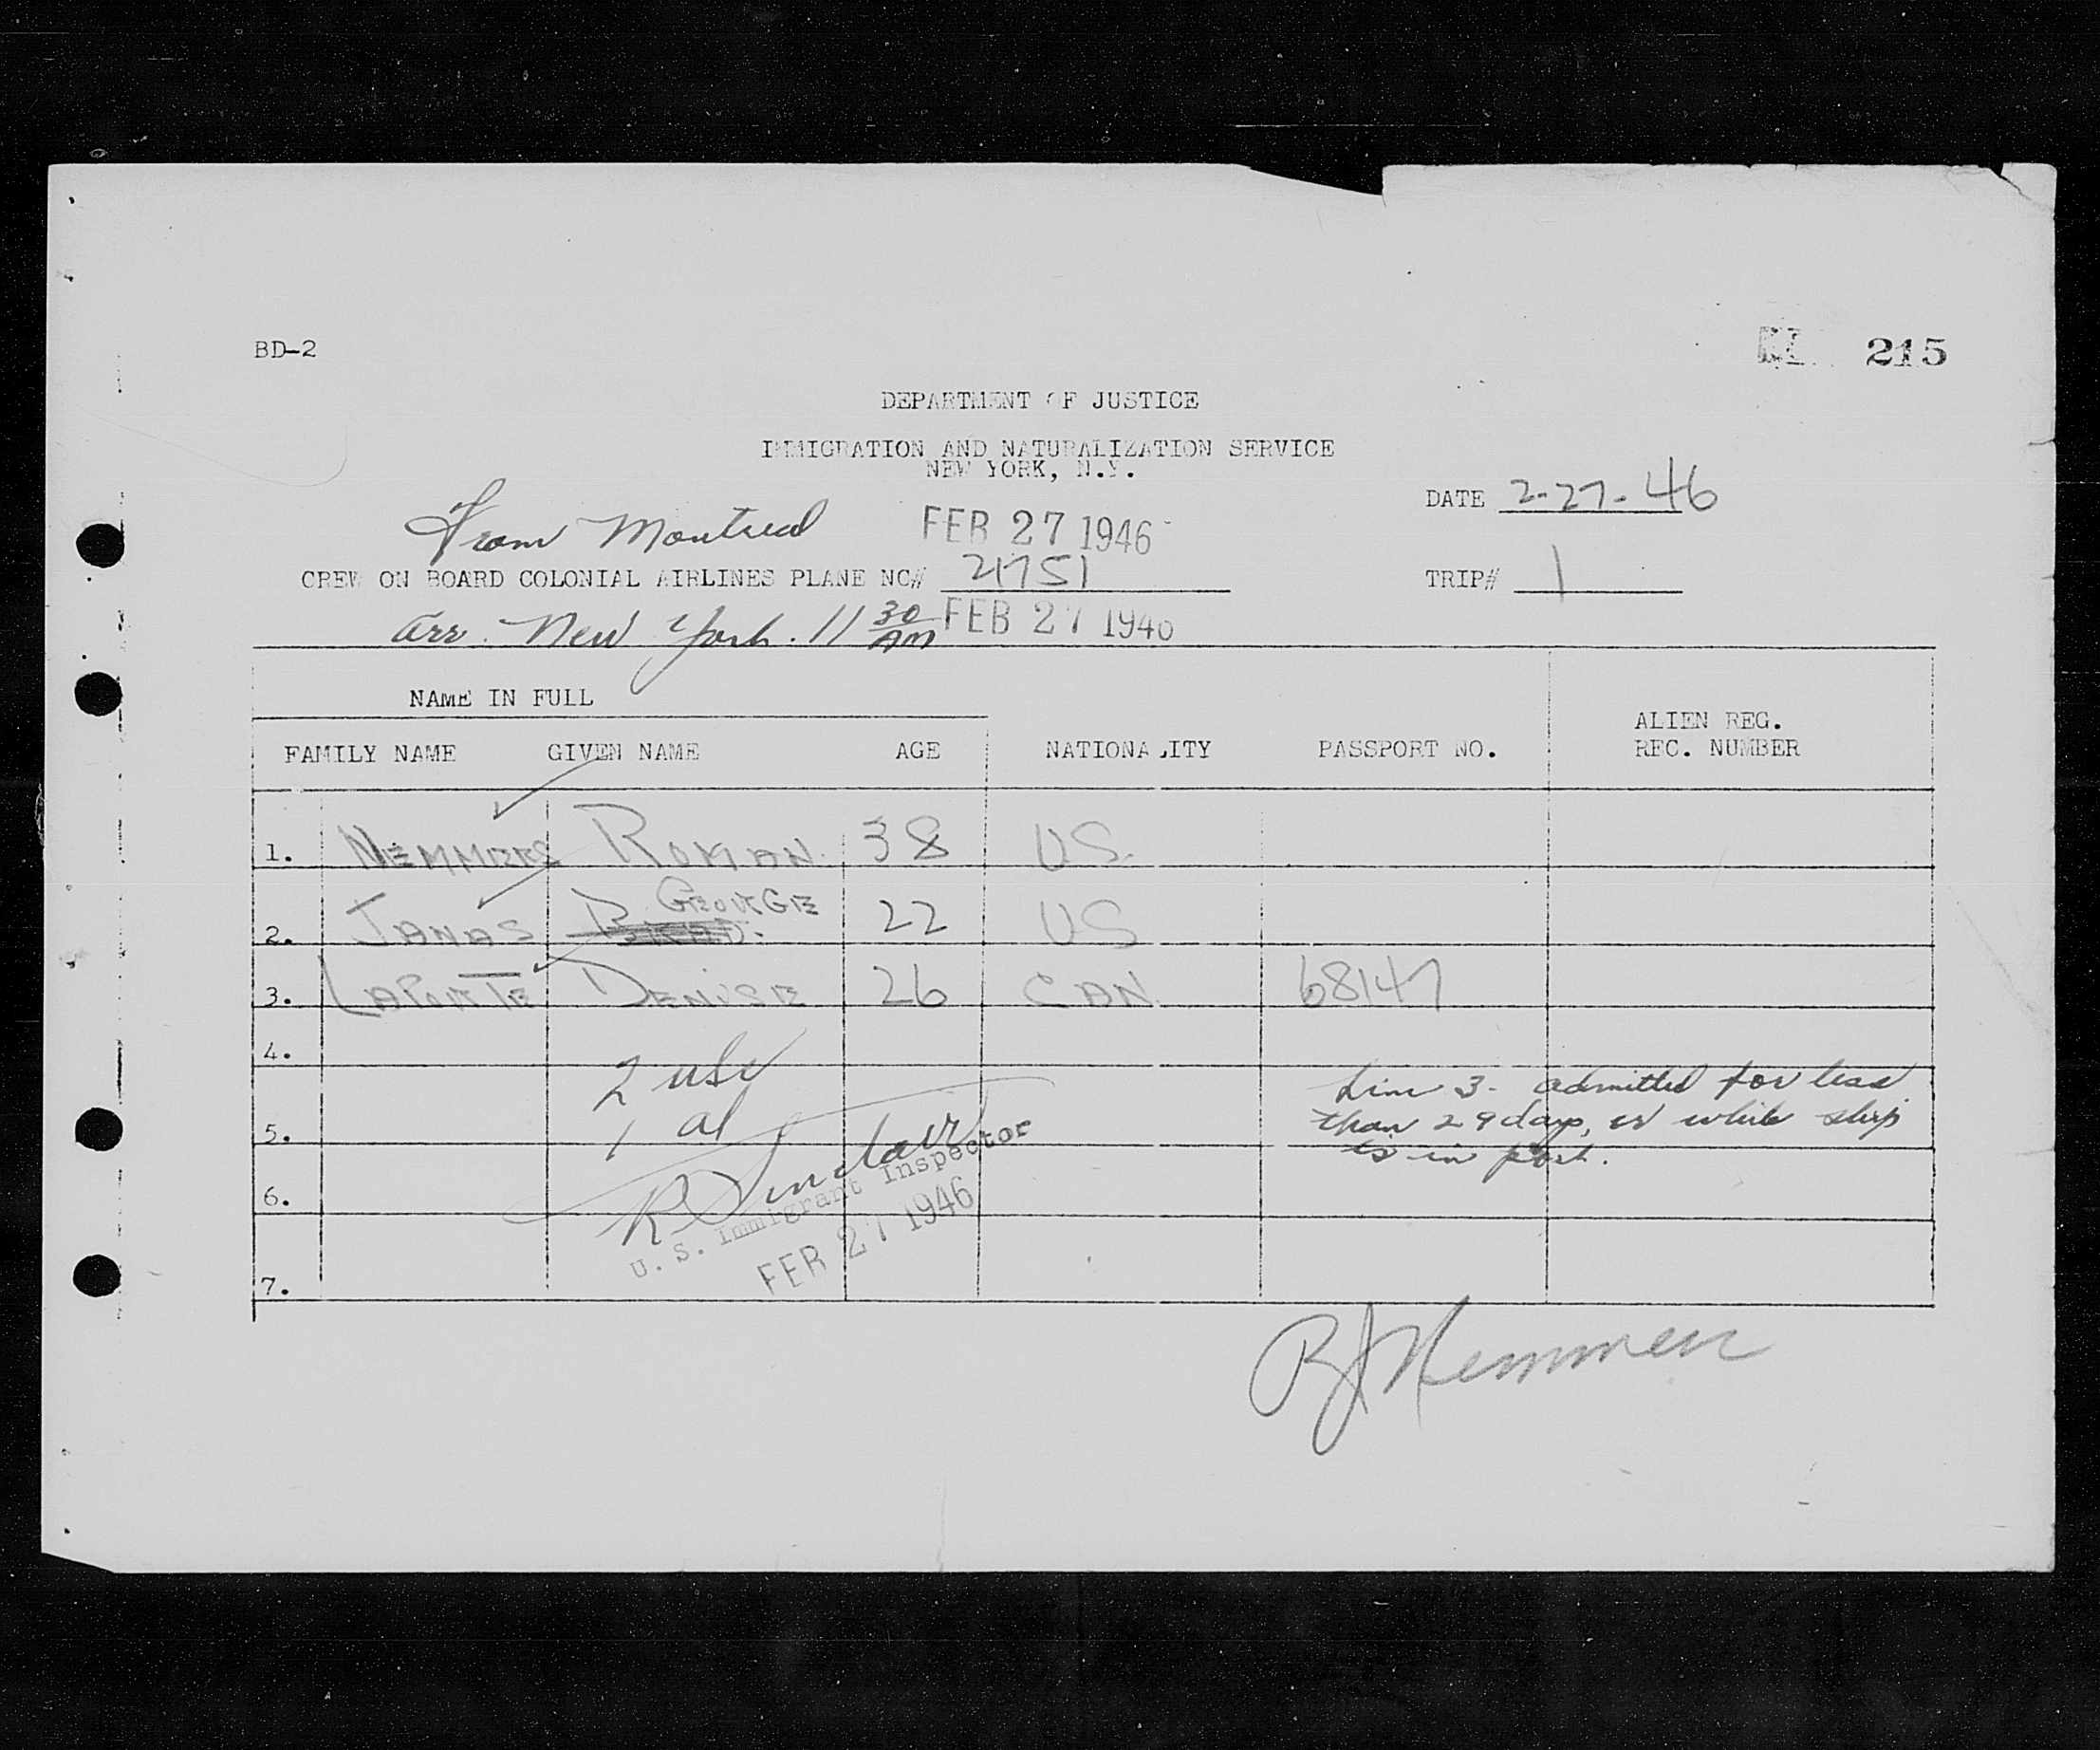 BD-2
215
DEPARTMENT OF JUSTICE
IMMIGRATION AND NATURALIZATION SERVICE
NEW YORK, N.Y.
DATE 2-27-46
From Montreal FEB 27 1946
CREW ON BOARD COLONIAL AIRLINES PLANE NC# 21751
TRIP# 1
Arr. New York. 11 30 AM FEB 27 1946
NAME IN FULL
FAMILY NAME GIVEN NAME AGE NATIONALITY PASSPORT NO. ALIEN REG. REC. NUMBER
1. NEMMERS ROMAN. 38 U.S.
2. JANAS GEORGE 22 US
3. LAPORTE DENISE 26 CAN. 68147
4.
2 usc
Line 3 - admitted for less
1 al
than 29 days, or while ship
5.
is in port.
R Sinclair
U. S. Immigrant Inspector
6.
FEB 27 1946
7.
RJ Nemmers